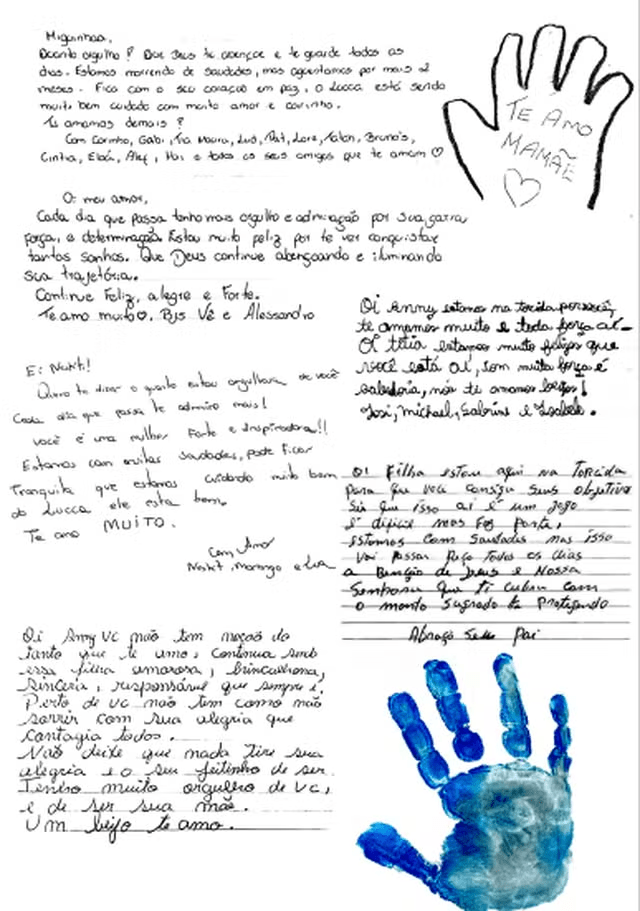 Miguinhaa,
Quanto orgulho! Que Deus te abençoe e te guarde todos os
dias. Estamos morrendo de saudades, mas aguentamos por mais 2
meses. Fica com o seu coração em paz, o Lucca está sendo
muito bem cuidado com muito amor e carinho.
Te amamos demais!
Com Carinho, Gabi, Tia Maura, Luis, Pat, Lara, Bruna's,
Cintia, Alef, e todos os seus amigos que te amam ♡
TE AMO
MAMÃE
Oi meu amor,
Cada dia que passa tenho mais orgulho e admiração por sua garra
força, e determinação. Estou muito feliz por te ver conquistar
tantos sonhos. Que Deus continue abençoando e iluminando
sua trajetória.
Continue Feliz, alegre e Forte.
Te amo muito♡, Bjs Vê e Alessandro
Oi Anny estamos na torcida por você,
te amamos muito e toda força aí-
Oi titia estamos muito felizes que
você está aí, com muita força e
sabedoria, nós te amamos beijos!
Josi, Michael, Sabrina e Isabele.
Ei
Quero te dizer o quanto estou orgulhosa de você
Cada dia que passa te admiro mais!
você é uma mulher Forte e Inspiradora!!
Estamos com muitas saudades, pode ficar
Tranquila que estamos cuidando muito bem
do Lucca ele esta bem.
Te amo MUITO.
Com Amor
Morango e Lua
Oi Filha estou aqui na Torcida
para que você consiga seus objetivo
Sei que isso aí é um jogo
É dificil mas Foz parte,
estamos com saudades mas isso
vai passar Peço Todos os dias
a Benção de Deus e Nossa
Senhora que ti cubra com
o manto sagrado te protegendo
Abraço Seu Pai
Oi Anny vc não tem noção do
tanto que te amo, continua sendo
essa filha amorosa, brincalhona,
sincera, responsável que sempre é.
Perto de vc não tem como não
sorrir com sua alegria que
contagia todos.
Não deixe que nada tire sua
alegria e o seu jeitinho de ser.
Tenho muito orgulho de vc,
e de ser sua mãe.
Um beijo te amo.